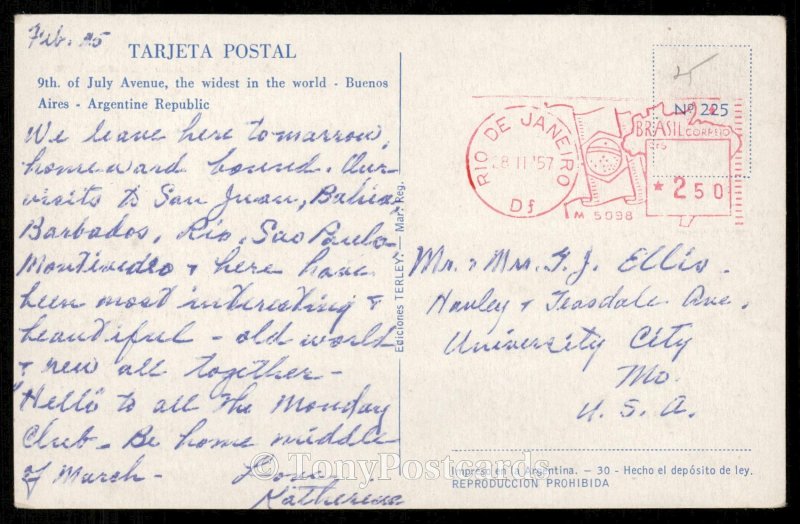 Feb. 25
TARJETA POSTAL
9th. of July Avenue, the widest in the world - Buenos
Aires - Argentine Republic
We leave here tomarrow,
homeward bound. Our
visits to San Juan, Bahia,
Barbados, Rio, Sao Paulo
Montivedeo + here have
been most interesting +
beautiful - old world
+ new all together -
"Hello" to all the Monday
Club - Be home middle
of March - Love
Katherine
Ediciones TERLEY. — Mar. Reg.
Nº 225
RIO DE JANEIRO
28 II '57
Df
M 5098
BRASIL CORREIO
* 2 50
Mr. + Mrs. F. J. Ellis.
Hanley + Teasdale Ave.
University City
Mo.
U. S. A.
Impreso en la Argentina. — 30 - Hecho el depósito de ley.
REPRODUCCION PROHIBIDA
© TonyPostcards